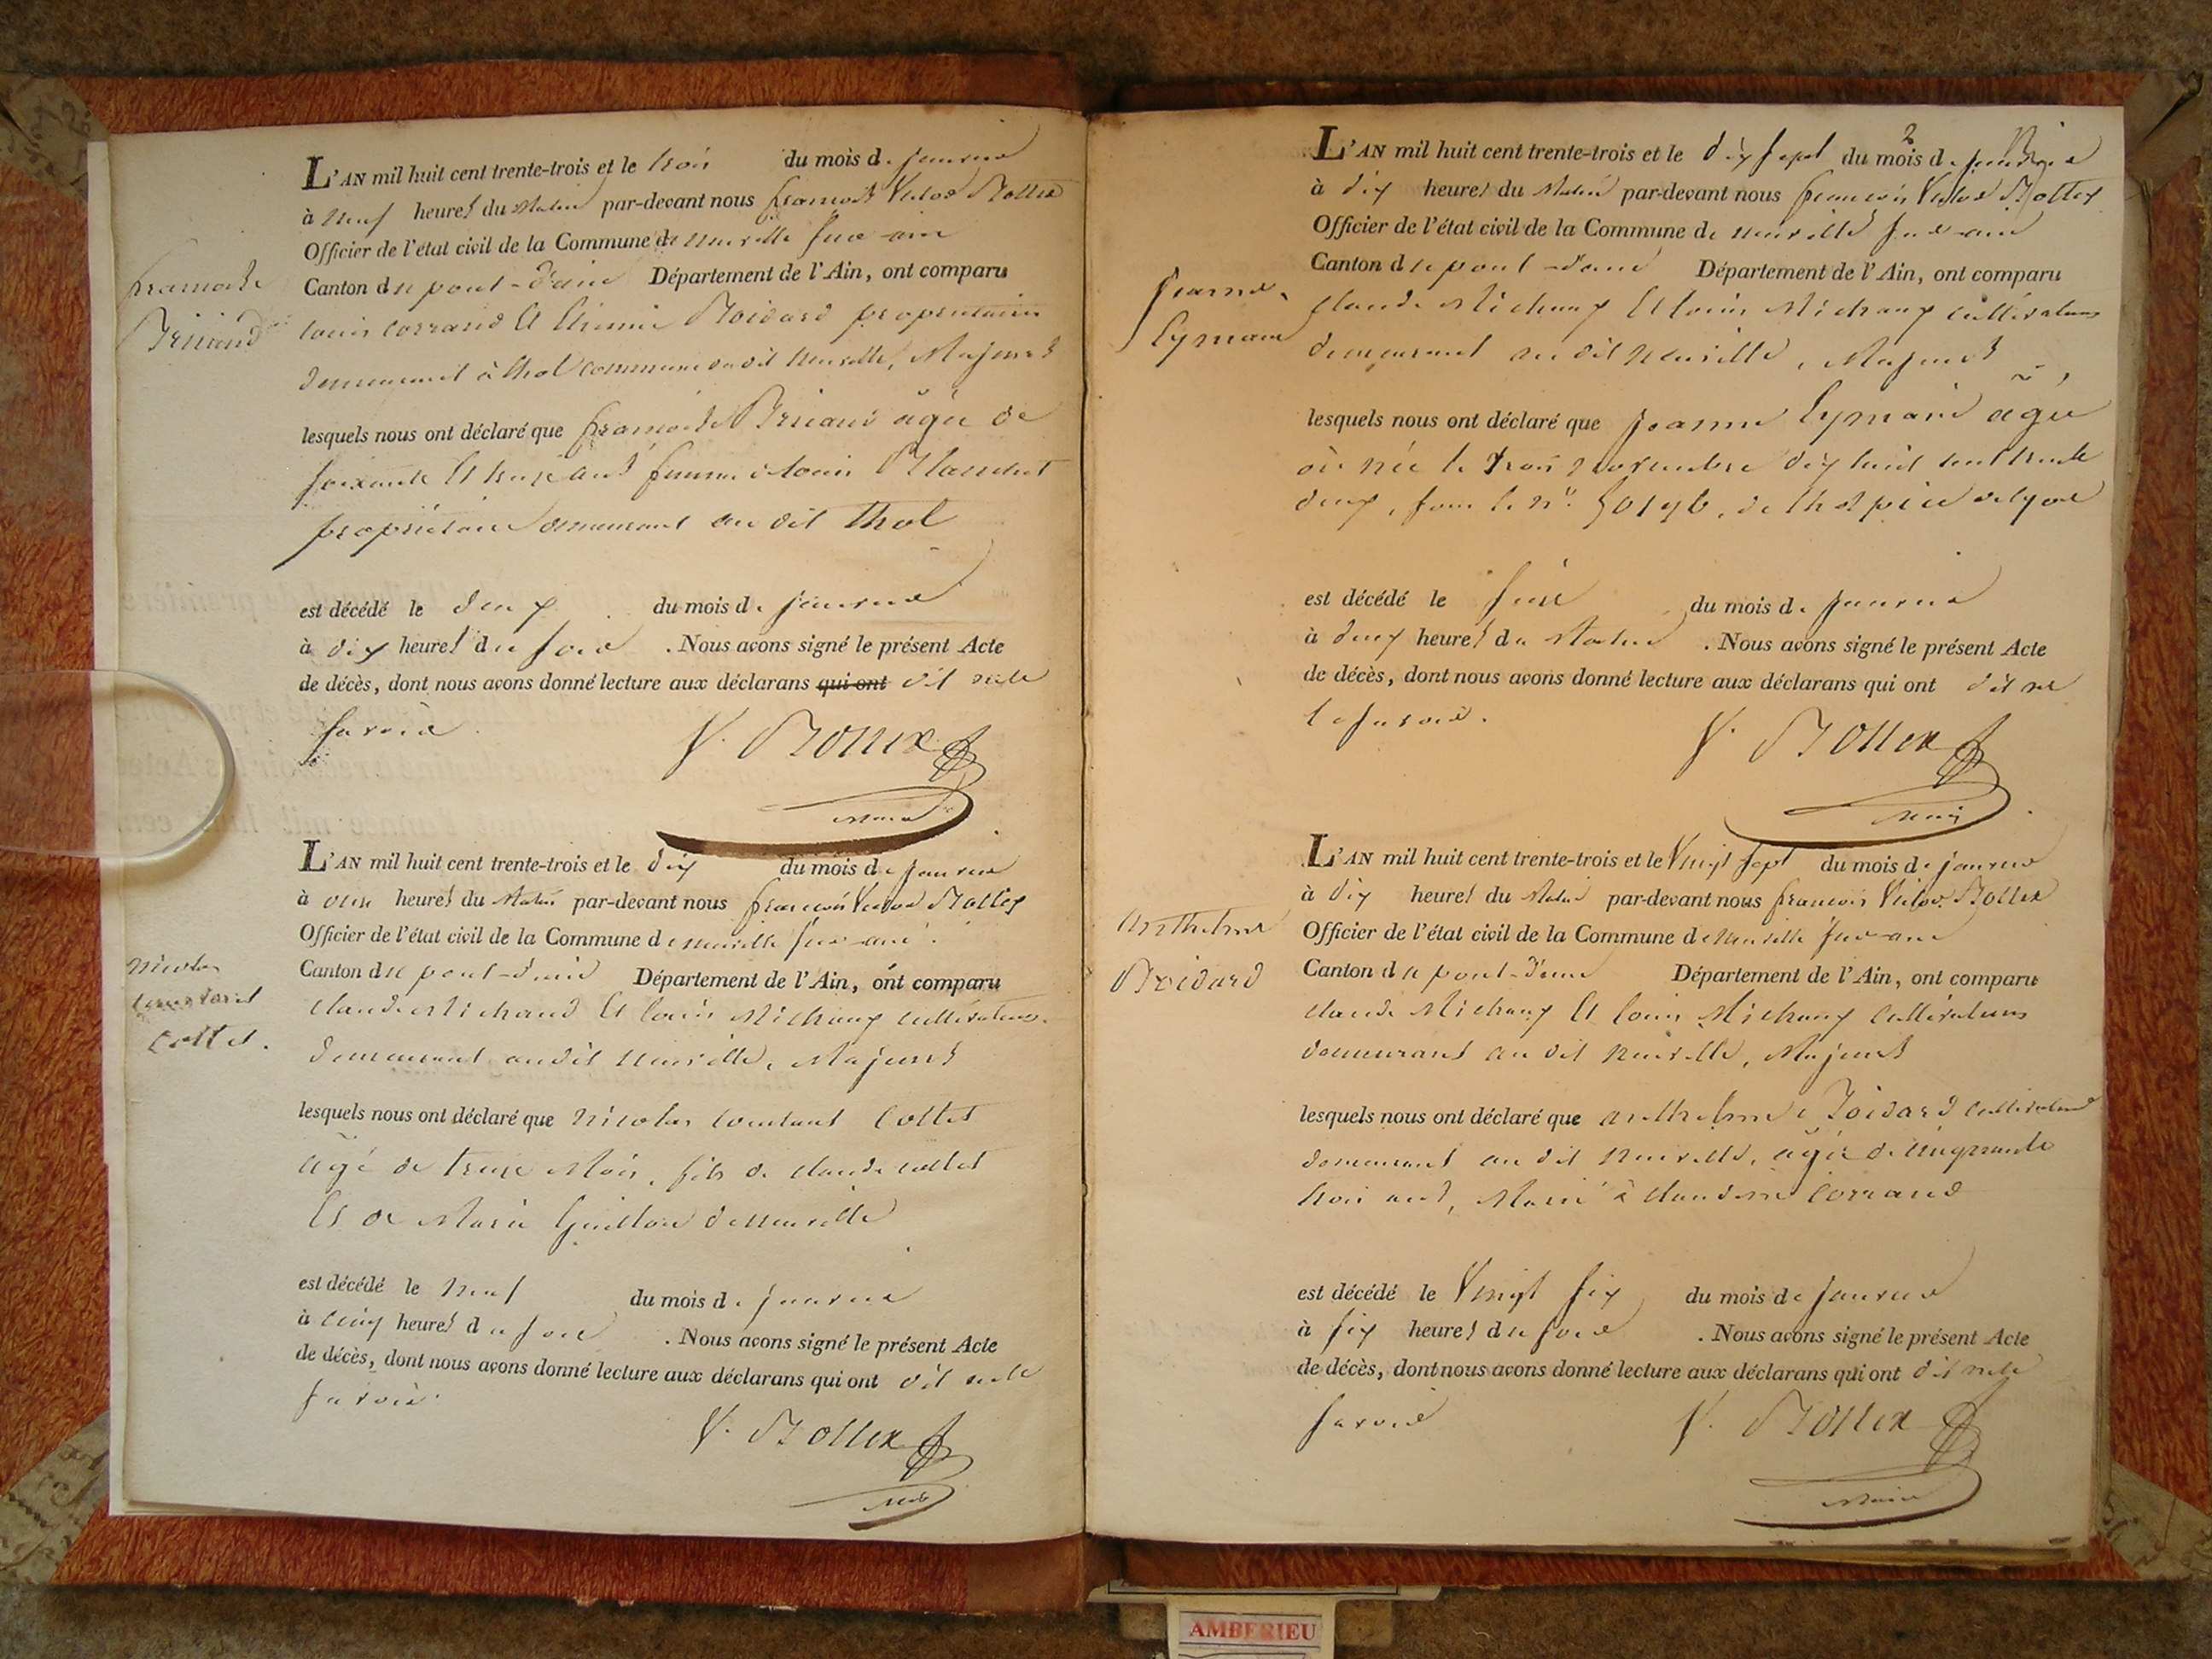 L'AN mil huit cent trente-trois et le trois du mois de janvier
à neuf heures du Matin par-devant nous françois Victor Bottex
Officier de l'état civil de la Commune de neuville sur-ain
Canton de pont-d'ain Département de l'Ain, ont comparu
louis corrand Et Boidard propriétaires
demeurant à thol commune du dit neuville, Majeurs
lesquels nous ont déclaré que françoise âgée de
soixante Et ans femme de louis
propriétaire demeurant au dit thol
est décédé le deux du mois de janvier
à dix heures du soir . Nous avons signé le présent Acte
de décès, dont nous avons donné lecture aux déclarans qui ont dit ne le
savoir.
V. Bottex
Maire
françoise
L'AN mil huit cent trente-trois et le dix du mois de janvier
à onze heures du Matin par-devant nous françois Victor Bottex
Officier de l'état civil de la Commune de neuville sur-ain.
Canton de pont-d'ain Département de l'Ain, ont comparu
claude Michaud Et louis Michaux cultivateurs
demeurant audit neuville, Majeurs
lesquels nous ont déclaré que nicolas constant Cottet
âgé de treize Mois, fils de claude cottet
Et de Marie Guillon de neuville
est décédé le neuf du mois de janvier
à cinq heures du soir . Nous avons signé le présent Acte
de décès, dont nous avons donné lecture aux déclarans qui ont dit ne le
savoir.
V. Bottex
Maire
nicolas
constant
cottet.
2
L'AN mil huit cent trente-trois et le dix sept du mois de janvier
à dix heures du Matin par-devant nous françois Victor Bottex
Officier de l'état civil de la Commune de neuville sur-ain
Canton de pont-d'ain Département de l'Ain, ont comparu
claude Michaux Et louis Michaux cultivateurs
demeurant au dit neuville, Majeurs
lesquels nous ont déclaré que jeanne âgée
où née le trois novembre dix huit cent trente
deux, sous le n° 50196, de l'hospice de lyon
est décédé le seize du mois de janvier
à deux heures du Matin . Nous avons signé le présent Acte
de décès, dont nous avons donné lecture aux déclarans qui ont dit ne
le savoir.
V. Bottex
Maire
jeanne
L'AN mil huit cent trente-trois et le Vingt sept du mois de janvier
à dix heures du Matin par-devant nous françois Victor Bottex
Officier de l'état civil de la Commune de neuville sur-ain
Canton de pont-d'ain Département de l'Ain, ont comparu
claude Michaux Et louis Michaux Cultivateurs
demeurant au dit neuville, Majeurs
lesquels nous ont déclaré que anthelme Boidard cultivateur
demeurant au dit neuville, âgé de cinquante
trois ans, Marié à claudine Corrand
est décédé le Vingt six du mois de janvier
à six heures du soir . Nous avons signé le présent Acte
de décès, dont nous avons donné lecture aux déclarans qui ont dit ne le
savoir
V. Bottex
Maire
Anthelme
Boidard
AMBERIEU